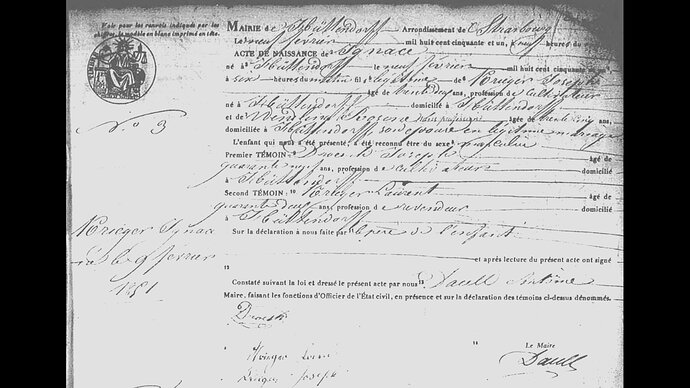 Voir pour les renvois indiqués par les
chiffres, le modèle en blanc imprimé en tête.
MAIRIE de Hüttendorff Arrondissement de Strasbourg
Le neuf février mil huit cent cinquante et un, à neuf heures du
ACTE DE NAISSANCE de Ignace
né à Hüttendorff le neuf février mil huit cent cinquante
à six heures du matin fils légitime de Krieger Joseph
âgé de trente deux ans, profession de cultivateur
né à Hüttendorff domicilié à Hüttendorff
et de Wendling Rosine sans profession âgée de trente cinq ans,
domiciliée à Hüttendorff son épouse en légitime mariage
L'enfant qui nous a été présenté, a été reconnu être du sexe masculin
Premier TÉMOIN: Joseph âgé de
quarante neuf ans, profession de cultivateur domicilié
à Hüttendorff
Second TÉMOIN: Krieger Laurent âgé de
quarante deux ans, profession de revendeur domicilié
à Hüttendorff
Sur la déclaration à nous faite par le père de l'enfant
et après lecture du présent acte ont signé
Constaté suivant la loi et dressé le présent acte par nous Daull Antoine
Maire, faisant les fonctions d'Officier de l'État civil, en présence et sur la déclaration des témoins ci-dessus dénommés.
Le Maire
Daull
Krieger
Krieger Joseph
No 3
Krieger Ignace
né le 9 février
1851